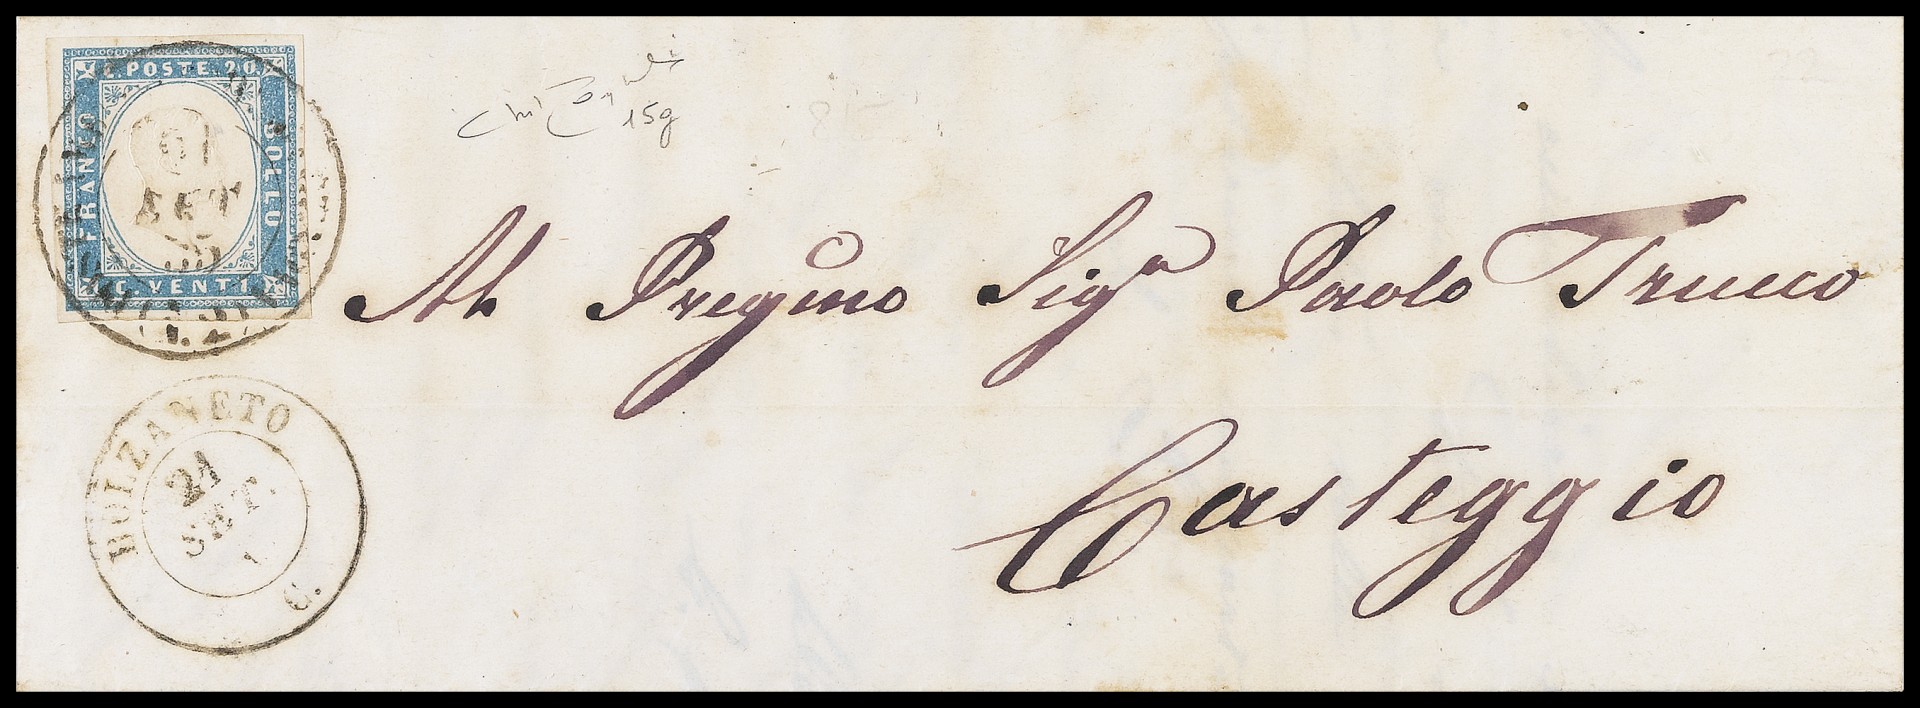 C. POSTE 20
FRANCO
BOLLO
C. VENTI
21
SET
55
15g
Al Pregmo Sigr Paolo Trucco
Casteggio
BOLZANETO
21
SET.
C.